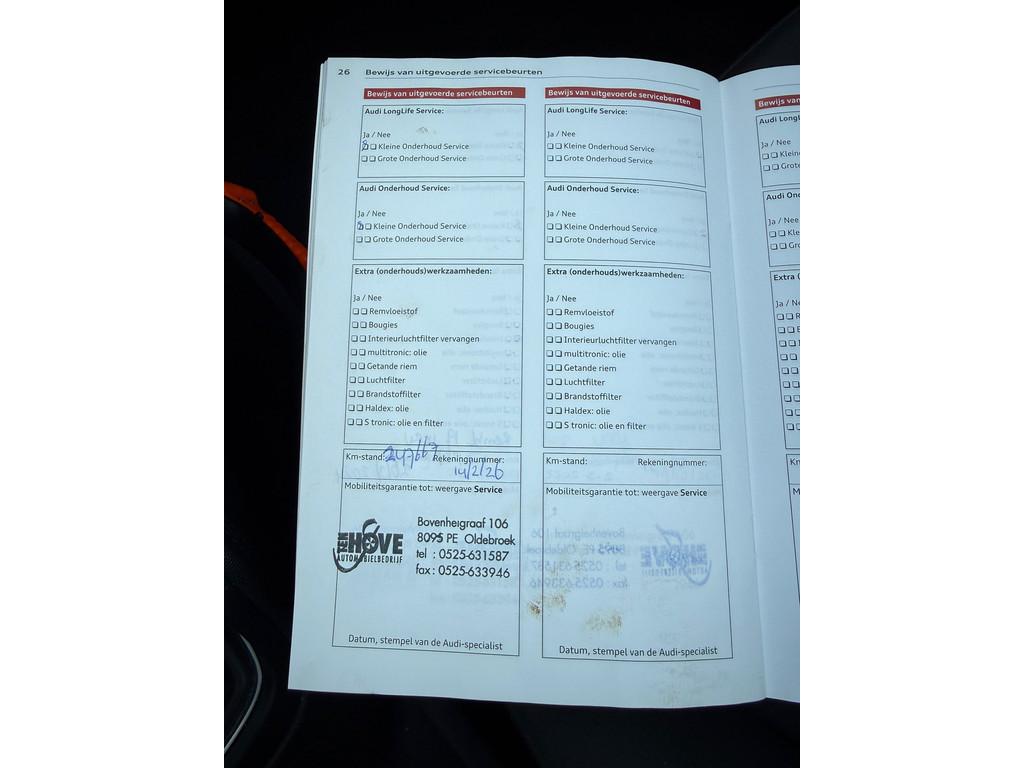 26 Bewijs van uitgevoerde servicebeurten
Bewijs van uitgevoerde servicebeurten
Audi LongLife Service:
Ja / Nee
Kleine Onderhoud Service
Grote Onderhoud Service
Audi Onderhoud Service:
Ja / Nee
Kleine Onderhoud Service
Grote Onderhoud Service
Extra (onderhouds)werkzaamheden:
Ja / Nee
Remvloeistof
Bougies
Interieurluchtfilter vervangen
multitronic: olie
Getande riem
Luchtfilter
Brandstoffilter
Haldex: olie
S tronic: olie en filter
Km-stand: 247667 Rekeningnummer:
14/2/26
Mobiliteitsgarantie tot: weergave Service
TEN HOVE
AUTOMOBIELBEDRIJF
Bovenheigraaf 106
8095 PE Oldebroek
tel : 0525-631587
fax : 0525-633946
Datum, stempel van de Audi-specialist
Bewijs van uitgevoerde servicebeurten
Audi LongLife Service:
Ja / Nee
Kleine Onderhoud Service
Grote Onderhoud Service
Audi Onderhoud Service:
Ja / Nee
Kleine Onderhoud Service
Grote Onderhoud Service
Extra (onderhouds)werkzaamheden:
Ja / Nee
Remvloeistof
Bougies
Interieurluchtfilter vervangen
multitronic: olie
Getande riem
Luchtfilter
Brandstoffilter
Haldex: olie
S tronic: olie en filter
Km-stand: Rekeningnummer:
Mobiliteitsgarantie tot: weergave Service
Datum, stempel van de Audi-specialist
Bewijs van
Audi
Ja / Nee
Audi
Ja / Nee
Extra